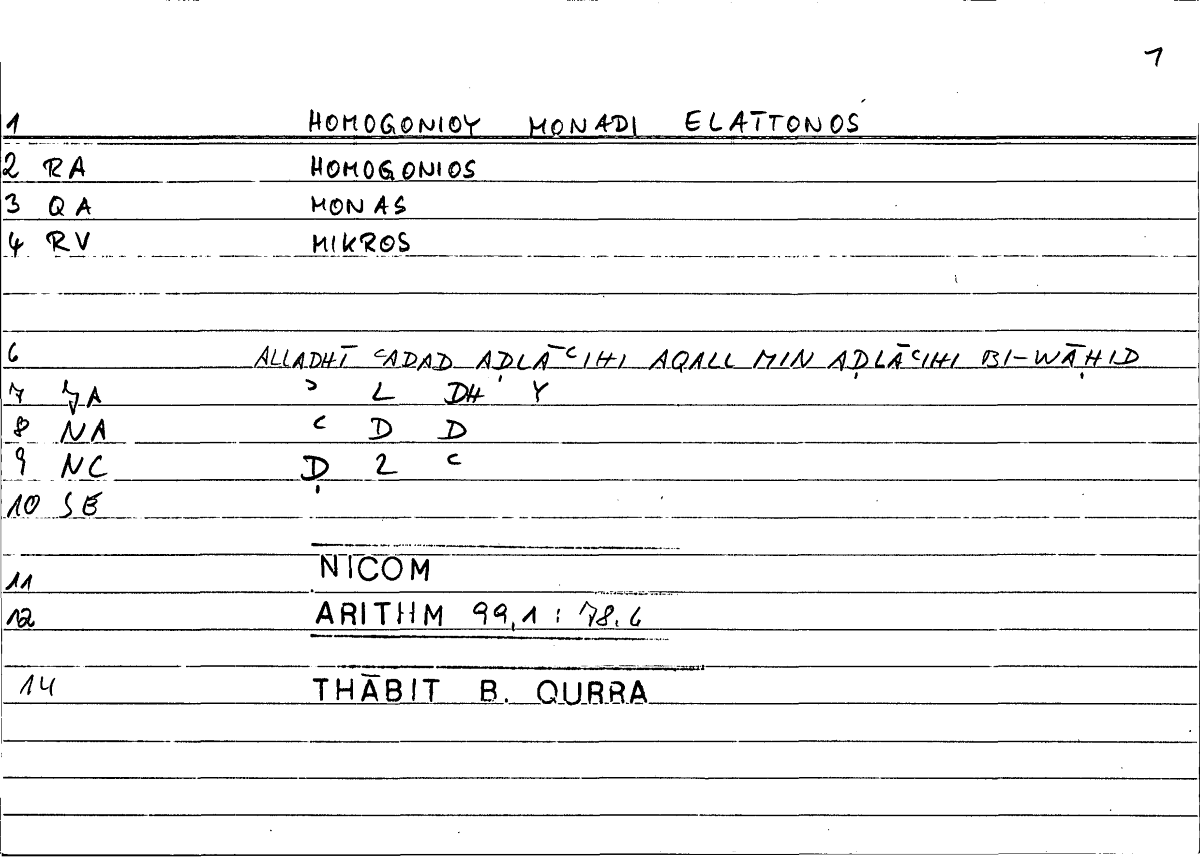 1
1 HOMOGONIOY MONADI ELATTONOS
2 RA HOMOGONIOS
3 QA MONAS
4 RV MIKROS
6 ALLADHĪ ʿADAD AḌLĀʿIHI AQALL MIN AḌLĀʿIHI BI-WĀḤID
7 ʾ L DH Y
8 NA ʿ D D
9 NC Ḍ 2 ʿ
10 SE
11 NICOM
12 ARITHM 99,1 : 78.6
14 THĀBIT B. QURRA